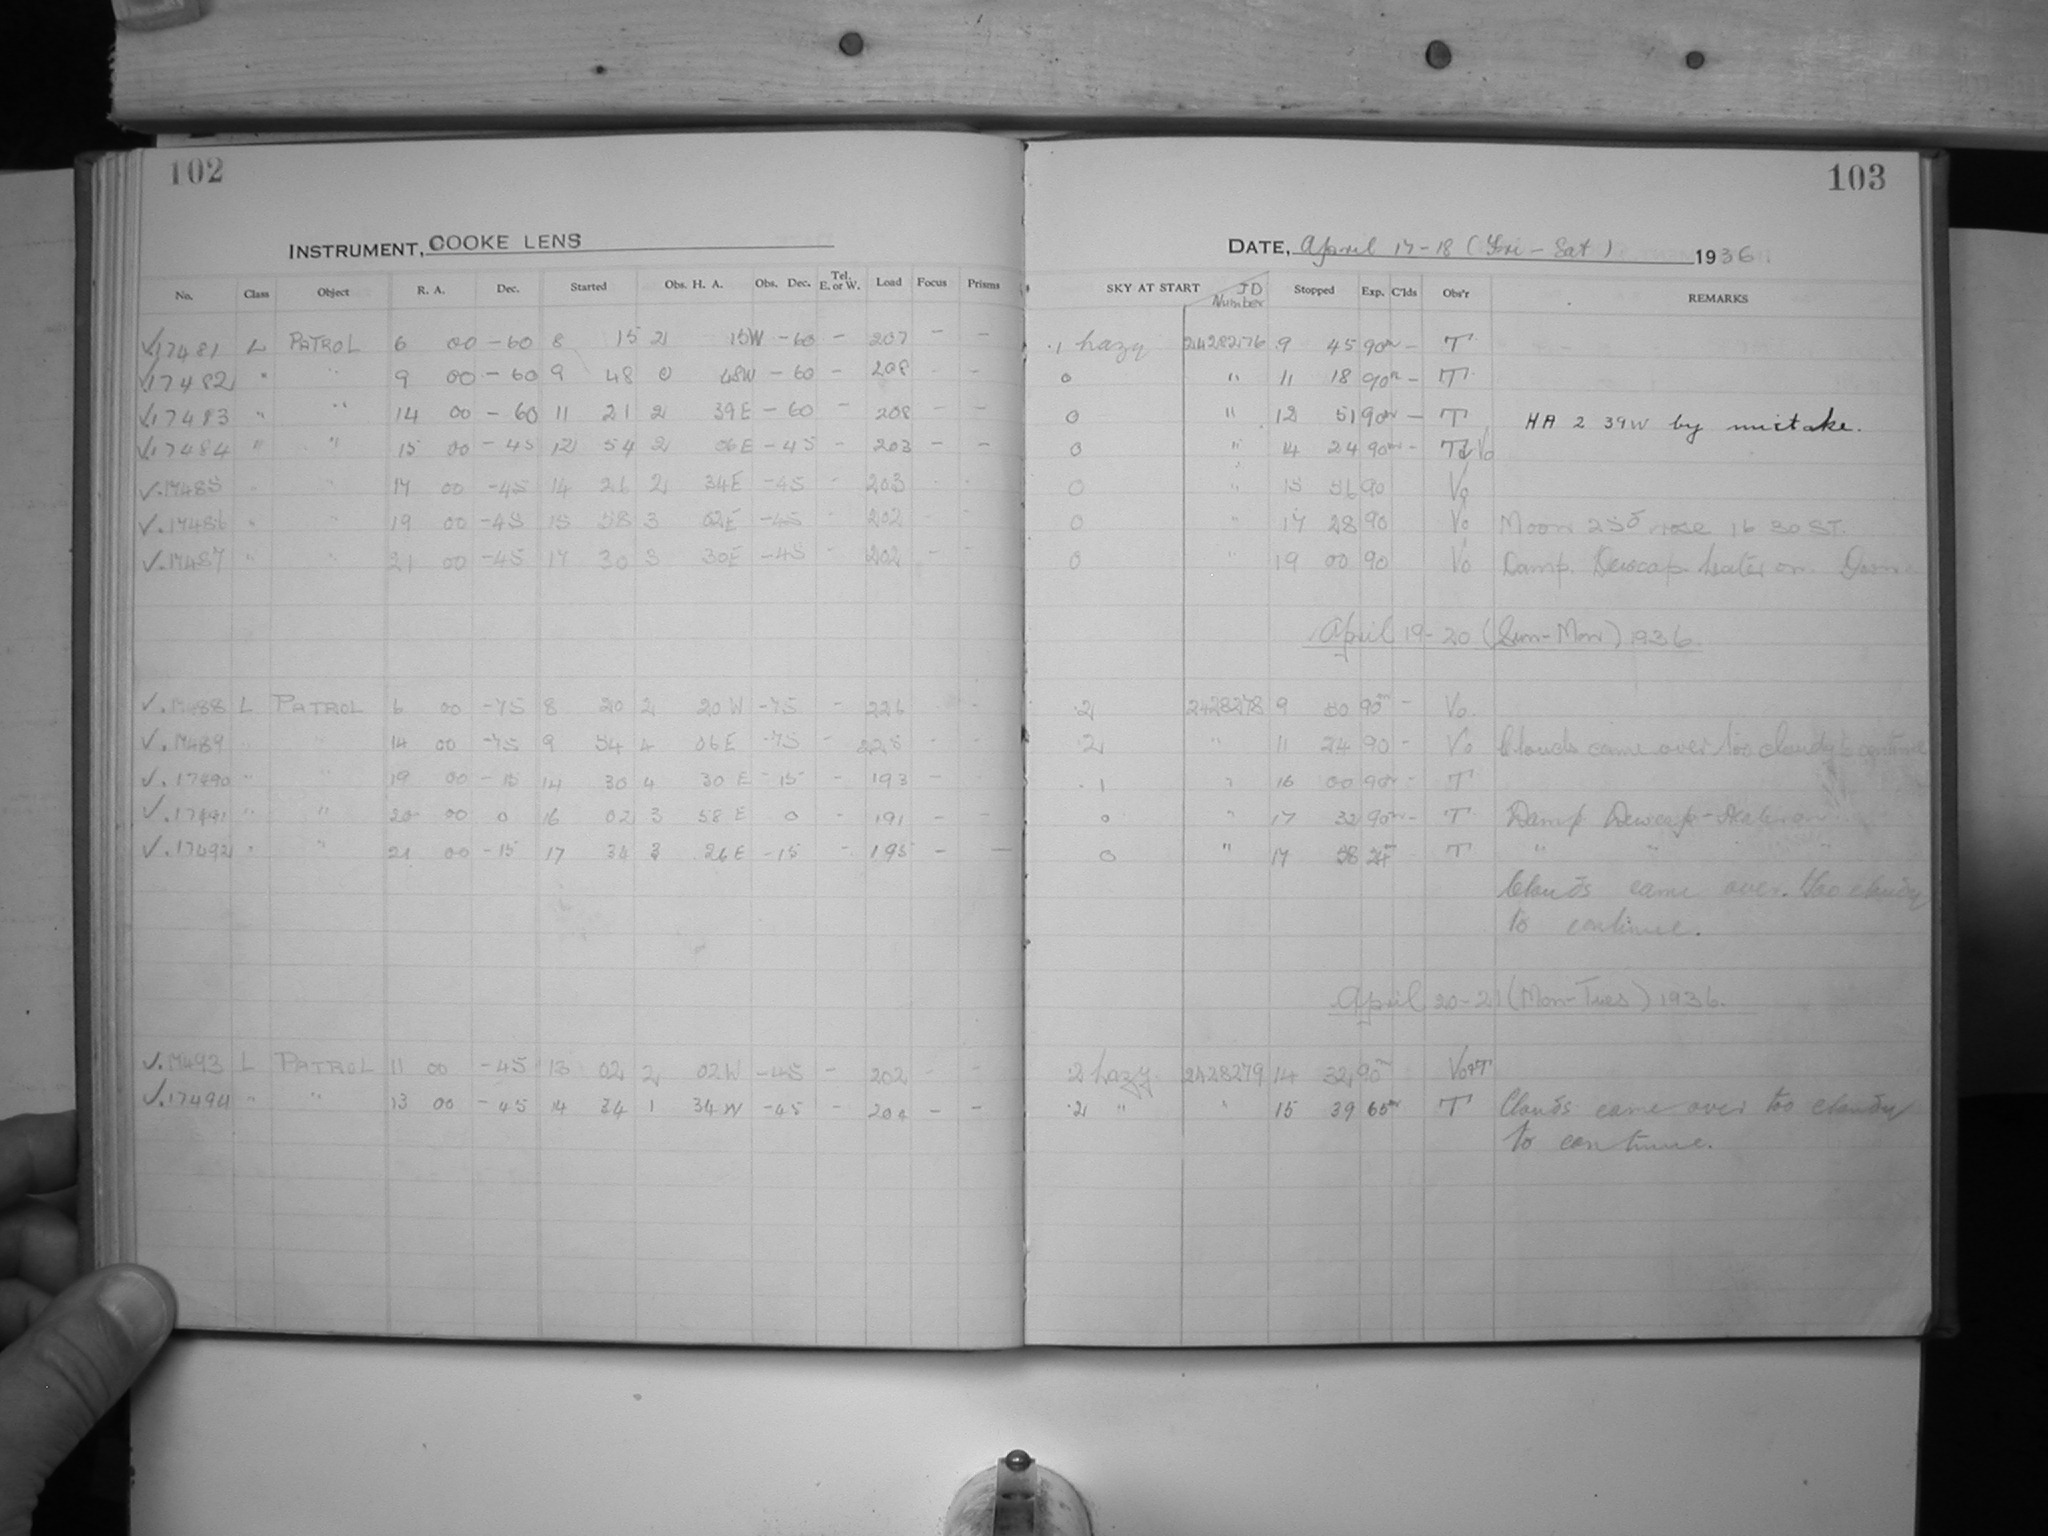 102
103
INSTRUMENT, COOKE LENS
DATE, April 17-18 (Fri - Sat) 1936
No. Class Object R. A. Dec. Started Obs. H. A. Obs. Dec. Tel. E. or W. Load Focus Prisms SKY AT START JD Number Stopped Exp. C'lds Obs'r REMARKS
✓17481 L PATROL 6 00 -60 8 15 2 15W -60 - 207 - - .1 hazy 2428276 9 45 90m - T
✓17482 " " 9 00 -60 9 48 0 48W -60 - 208 - - 0 " 11 18 90m - T
✓17483 " " 14 00 -60 11 21 2 39E -60 - 208 - - 0 " 12 51 90m - T HA 2 39W by mistake.
✓17484 " " 15 00 -45 12 54 2 06E -45 - 203 - - 0 " 14 24 90m - T&Vo
✓.17485 " " 17 00 -45 14 26 2 34E -45 - 203 - - 0 " 15 56 90 Vo
✓.17486 " " 19 00 -45 15 58 3 02E -45 - 202 - - 0 " 17 28 90 Vo Moon 25d rose 16 30 ST.
✓.17487 " " 21 00 -45 17 30 3 30E -45 - 202 - - 0 " 19 00 90 Vo Damp. Dewcap heater on. Dawn.
April 19-20 (Sun-Mon) 1936.
✓.17488 L PATROL 6 00 -75 8 20 2 20W -75 - 226 - - .2 2428278 9 50 90m - Vo.
✓.17489 " " 14 00 -75 9 54 4 06E -75 - 228 - - .2 " 11 24 90 - Vo Clouds came over too cloudy to continue
✓.17490 " " 19 00 -15 14 30 4 30 E -15 - 193 - .1 " 16 00 90m - T
✓.17491 " " 20 00 0 16 02 3 58 E 0 - 191 - - 0 " 17 32 90m - T Damp Dewcap-Heater on
✓.17492 " " 21 00 -15 17 34 3 26E -15 - 195 - - 0 " 17 58 24m T " " "
Clouds came over. too cloudy
to continue.
April 20-21 (Mon-Tues) 1936.
✓.17493 L PATROL 11 00 -45 13 02 2 02W -45 - 202 - - .2 hazy 2428279 14 32 90m Vo&T
✓.17494 " " 13 00 -45 14 34 1 34W -45 - 204 - - .2 " " 15 39 65m T Clouds came over too cloudy
to continue.